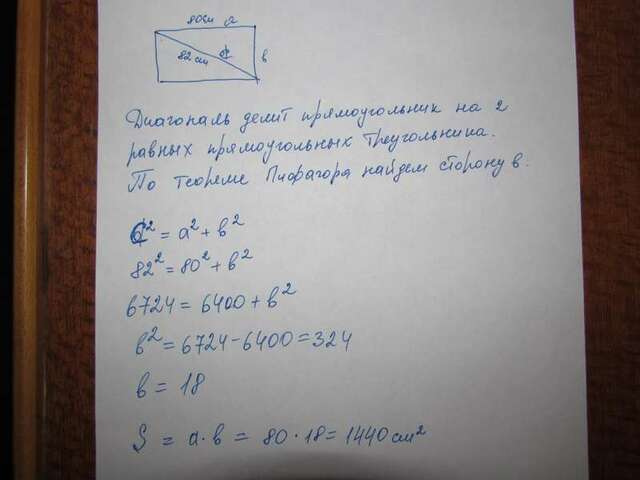 80см a
82 см d в
Диагональ делит прямоугольник на 2
равных прямоугольных треугольника.
По теореме Пифагора найдем сторону в.
d² = a² + в²
82² = 80² + в²
6724 = 6400 + в²
в² = 6724 - 6400 = 324
в = 18
S = a · в = 80 · 18 = 1440 см²